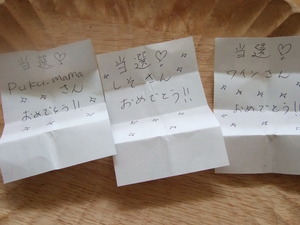 当選♡
Puku.mama
さん
おめでとう!!
当選♡
しそさん
おめでとう!!
当選♡
ワインさん
おめでとう!!